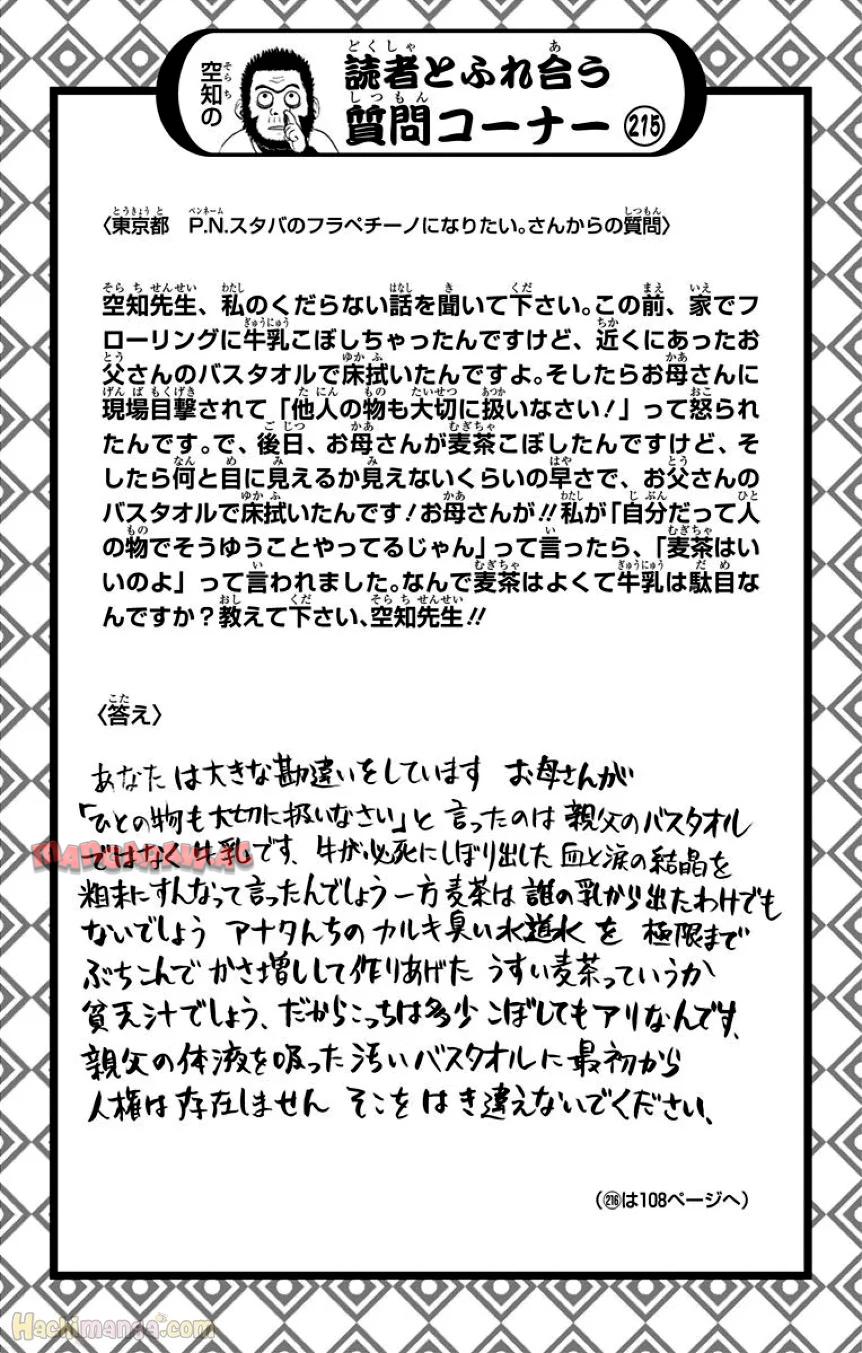 空知の
読者とふれ合う
質問コーナー 215
〈東京都　P.N.スタバのフラペチーノになりたい。さんからの質問〉
空知先生、私のくだらない話を聞いて下さい。この前、家でフ
ローリングに牛乳こぼしちゃったんですけど、近くにあったお
父さんのバスタオルで床拭いたんですよ。そしたらお母さんに
現場目撃されて「他人の物も大切に扱いなさい！」って怒られ
たんです。で、後日、お母さんが麦茶こぼしたんですけど、そ
したら何と目に見えるか見えないくらいの早さで、お父さんの
バスタオルで床拭いたんです！お母さんが!!私が「自分だって人
の物でそうゆうことやってるじゃん」って言ったら、「麦茶はい
いのよ」って言われました。なんで麦茶はよくて牛乳は駄目な
んですか？教えて下さい、空知先生!!
〈答え〉
あなたは大きな勘違いをしています お母さんが
「ひとの物も大切に扱いなさい」と言ったのは親父のバスタオル
ではなく牛乳です、牛が必死にしぼり出した血と涙の結晶を
粗末にすんなって言ったんでしょう一方麦茶は誰の乳から出たわけでも
ないでしょう アナタんちのカルキ臭い水道水を 極限まで
ぶちこんで かさ増しして作りあげた うすい麦茶っていうか
貧乏汁でしょう、だからこっちは多少こぼしてもアリなんです、
親父の体液を吸った汚いバスタオルに最初から
人権は存在しません そこをはき違えないでください、
（216は108ページへ）
MANGARAW.AC
Hachimanga.com